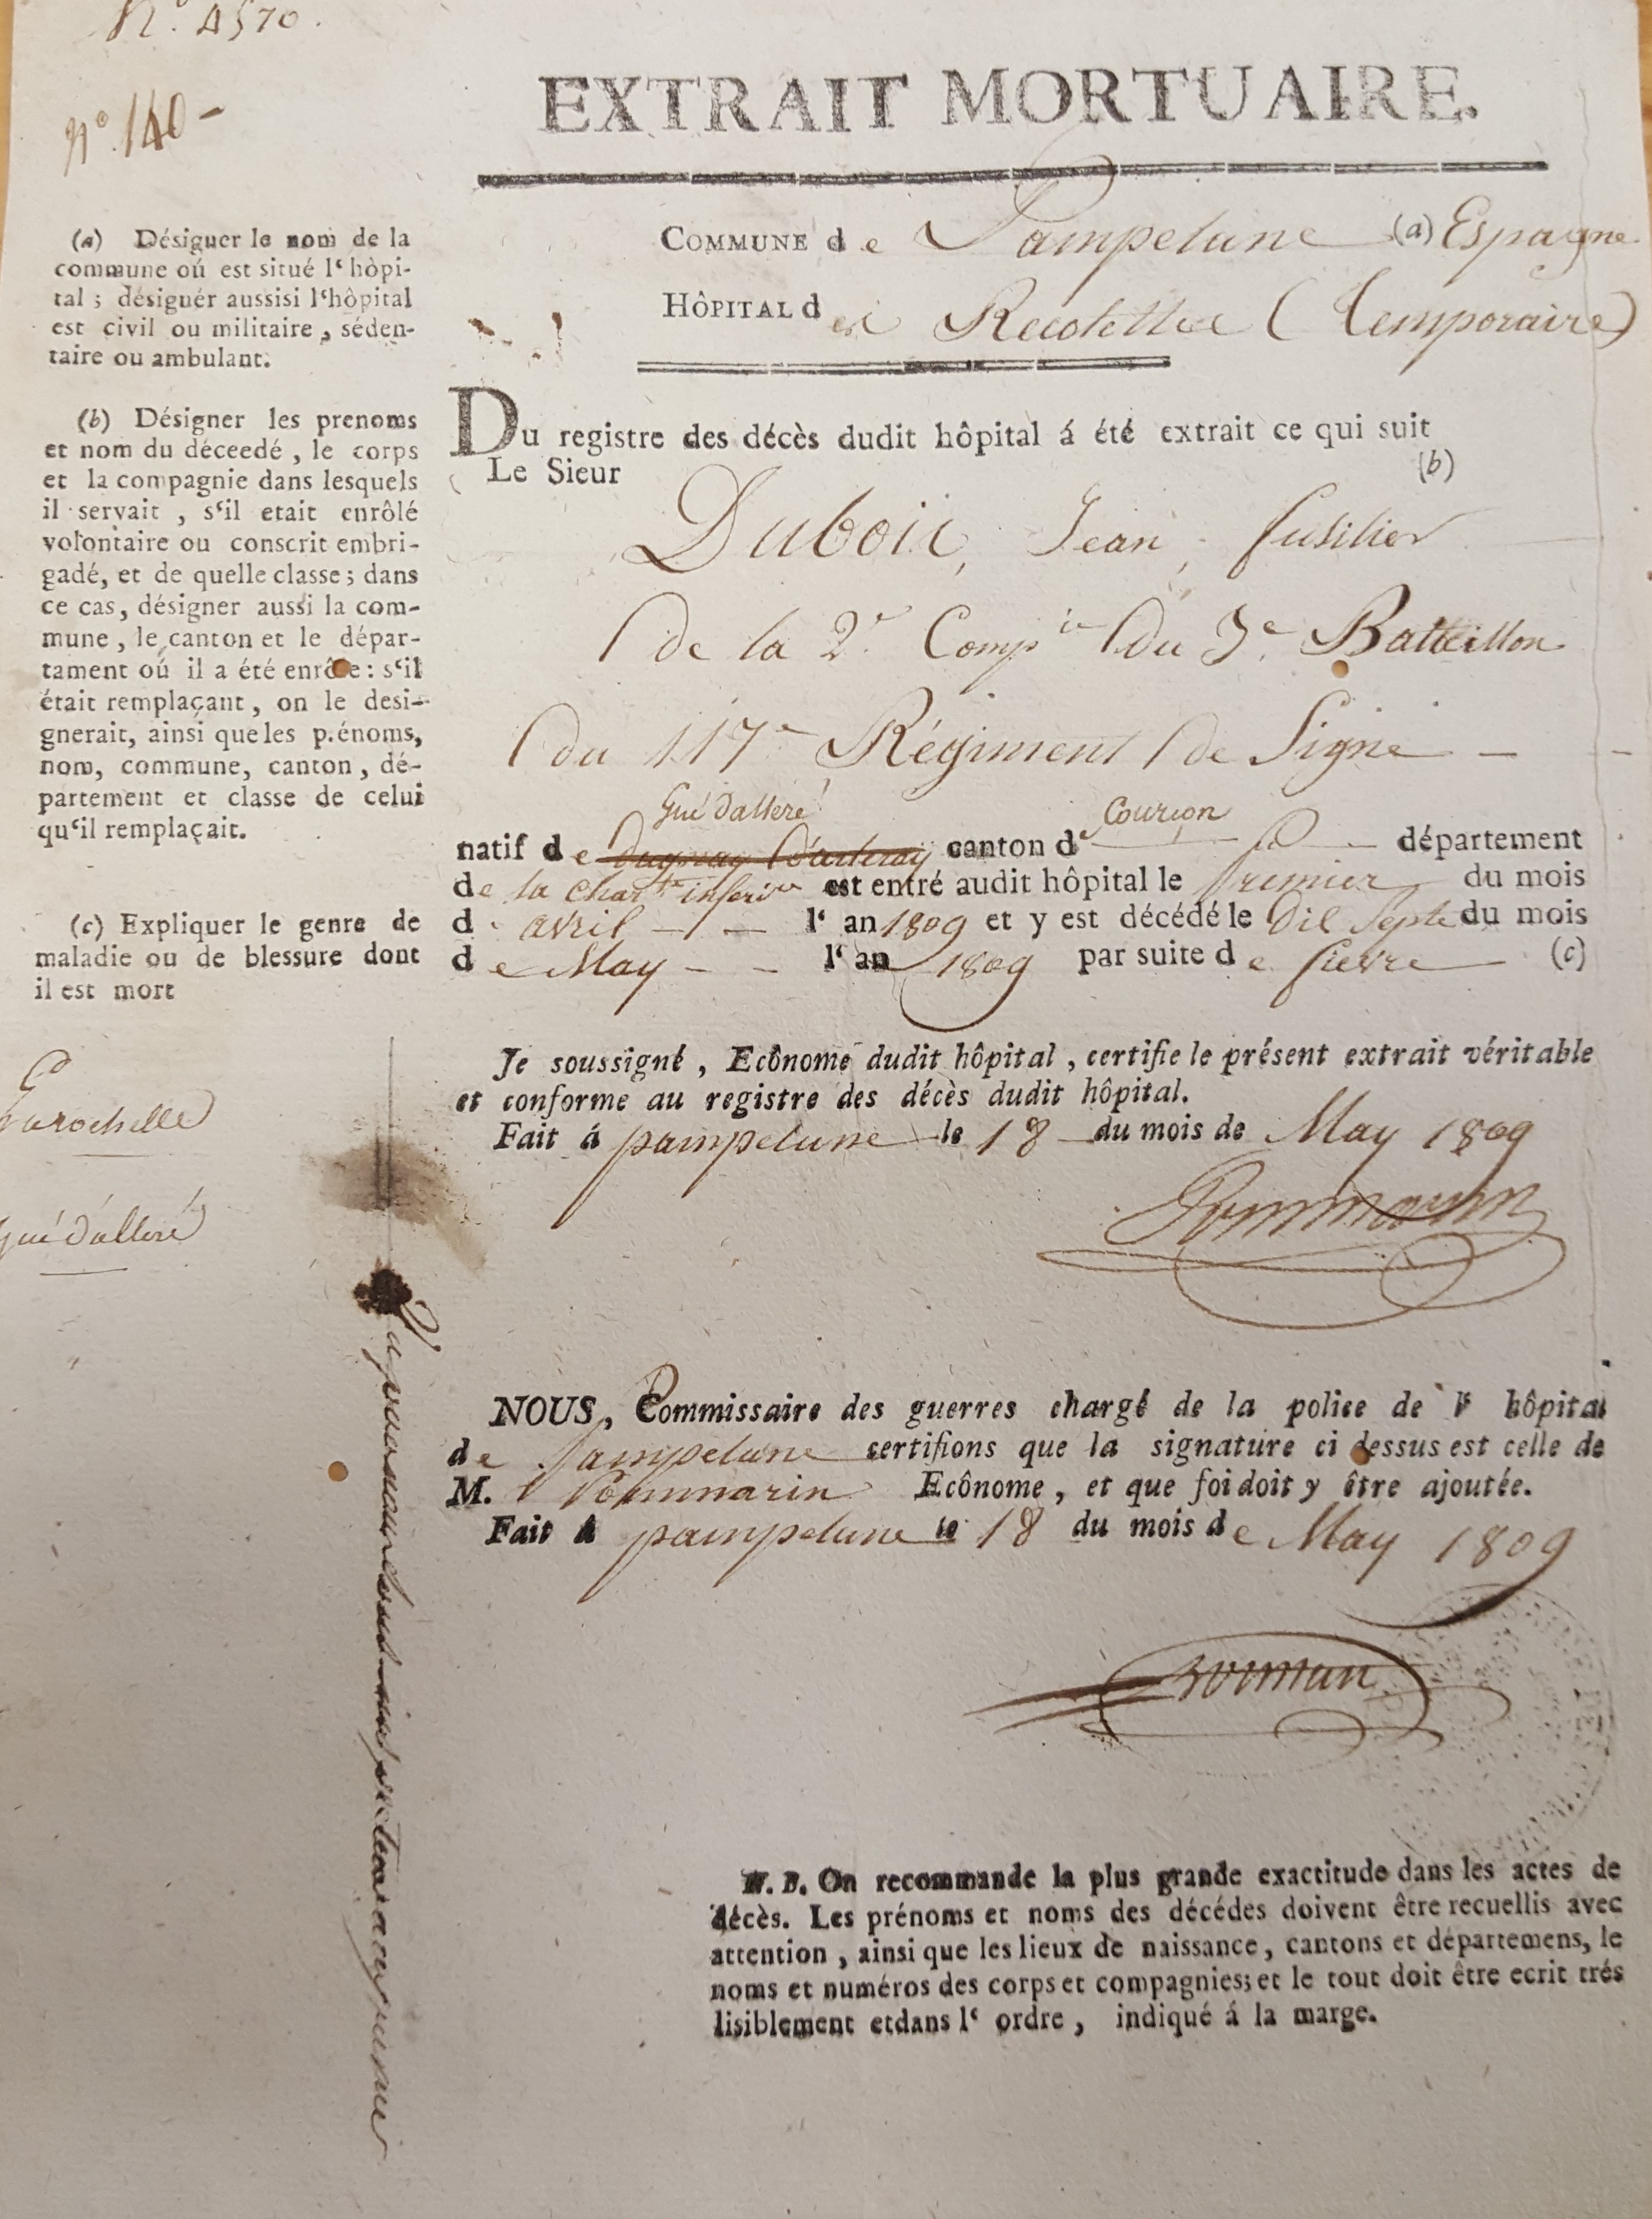 N.º 4570.
Nº. 140 -
EXTRAIT MORTUAIRE.
COMMUNE de Pampelune (a) Espagne
HÔPITAL des Recolettes (temporaire)
(a) Désiguer le nom de la
commune oú est situé l‘ hòpi-
tal ; désiguér aussisi l‘hôpital
est civil ou militaire , séden-
taire ou ambulant.
(b) Désigner les prenoms
et nom du déceedé , le corps
et la compagnie dans lesquels
il servait , s‘il etait enrôlé
volontaire ou conscrit embri-
gadé, et de quelle classe ; dans
ce cas, désigner aussi la com-
mune , le canton et le dépar-
tament oú il a été enrôle : s‘il
était remplaçant, on le desi-
gnerait, ainsi queles p.énoms,
nom, commune, canton, dé-
partement et classe de celui
qu‘il remplaçait.
(c) Expliquer le genre de
maladie ou de blessure dont
il est mort
Larochelle
Gué d'alleré
Du registre des décès dudit hôpital á été extrait ce qui suit
Le Sieur (b)
Dubois, Jean, fusilier
de la 2e Compie du 3e Bataillon
du 117e Régiment de Ligne -
Gué d'alleré Courçon
natif de canton de département
de la Charte inferire est entré audit hôpital le premier du mois
d'avril l‘ an 1809 et y est décédé le Dix Sept du mois
de May - - l‘ an 1809 par suite de fievre (c)
Je soussigné , Ecônome dudit hôpital , certifie le présent extrait véritable
et conforme au registre des décès dudit hôpital.
Fait á pampelune le 18 du mois de May 1809
Pommarin
NOUS, Commissaire des guerres chargé de la police de l‘ hôpital
de Pampelune certifions que la signature ci dessus est celle de
M. Pommarin Ecônome , et que foi doit y être ajoutée.
Fait á pampelune le 18 du mois de May 1809
N. B. On recommande la plus grande exactitude dans les actes de
décès. Les prénoms et noms des décédes doivent être recuellis avec
attention , ainsi que les lieux de naissance, cantons et départemens, le
noms et numéros des corps et compagnies; et le tout doit être ecrit trés
lisiblement etdans l‘ ordre , indiqué á la marge.